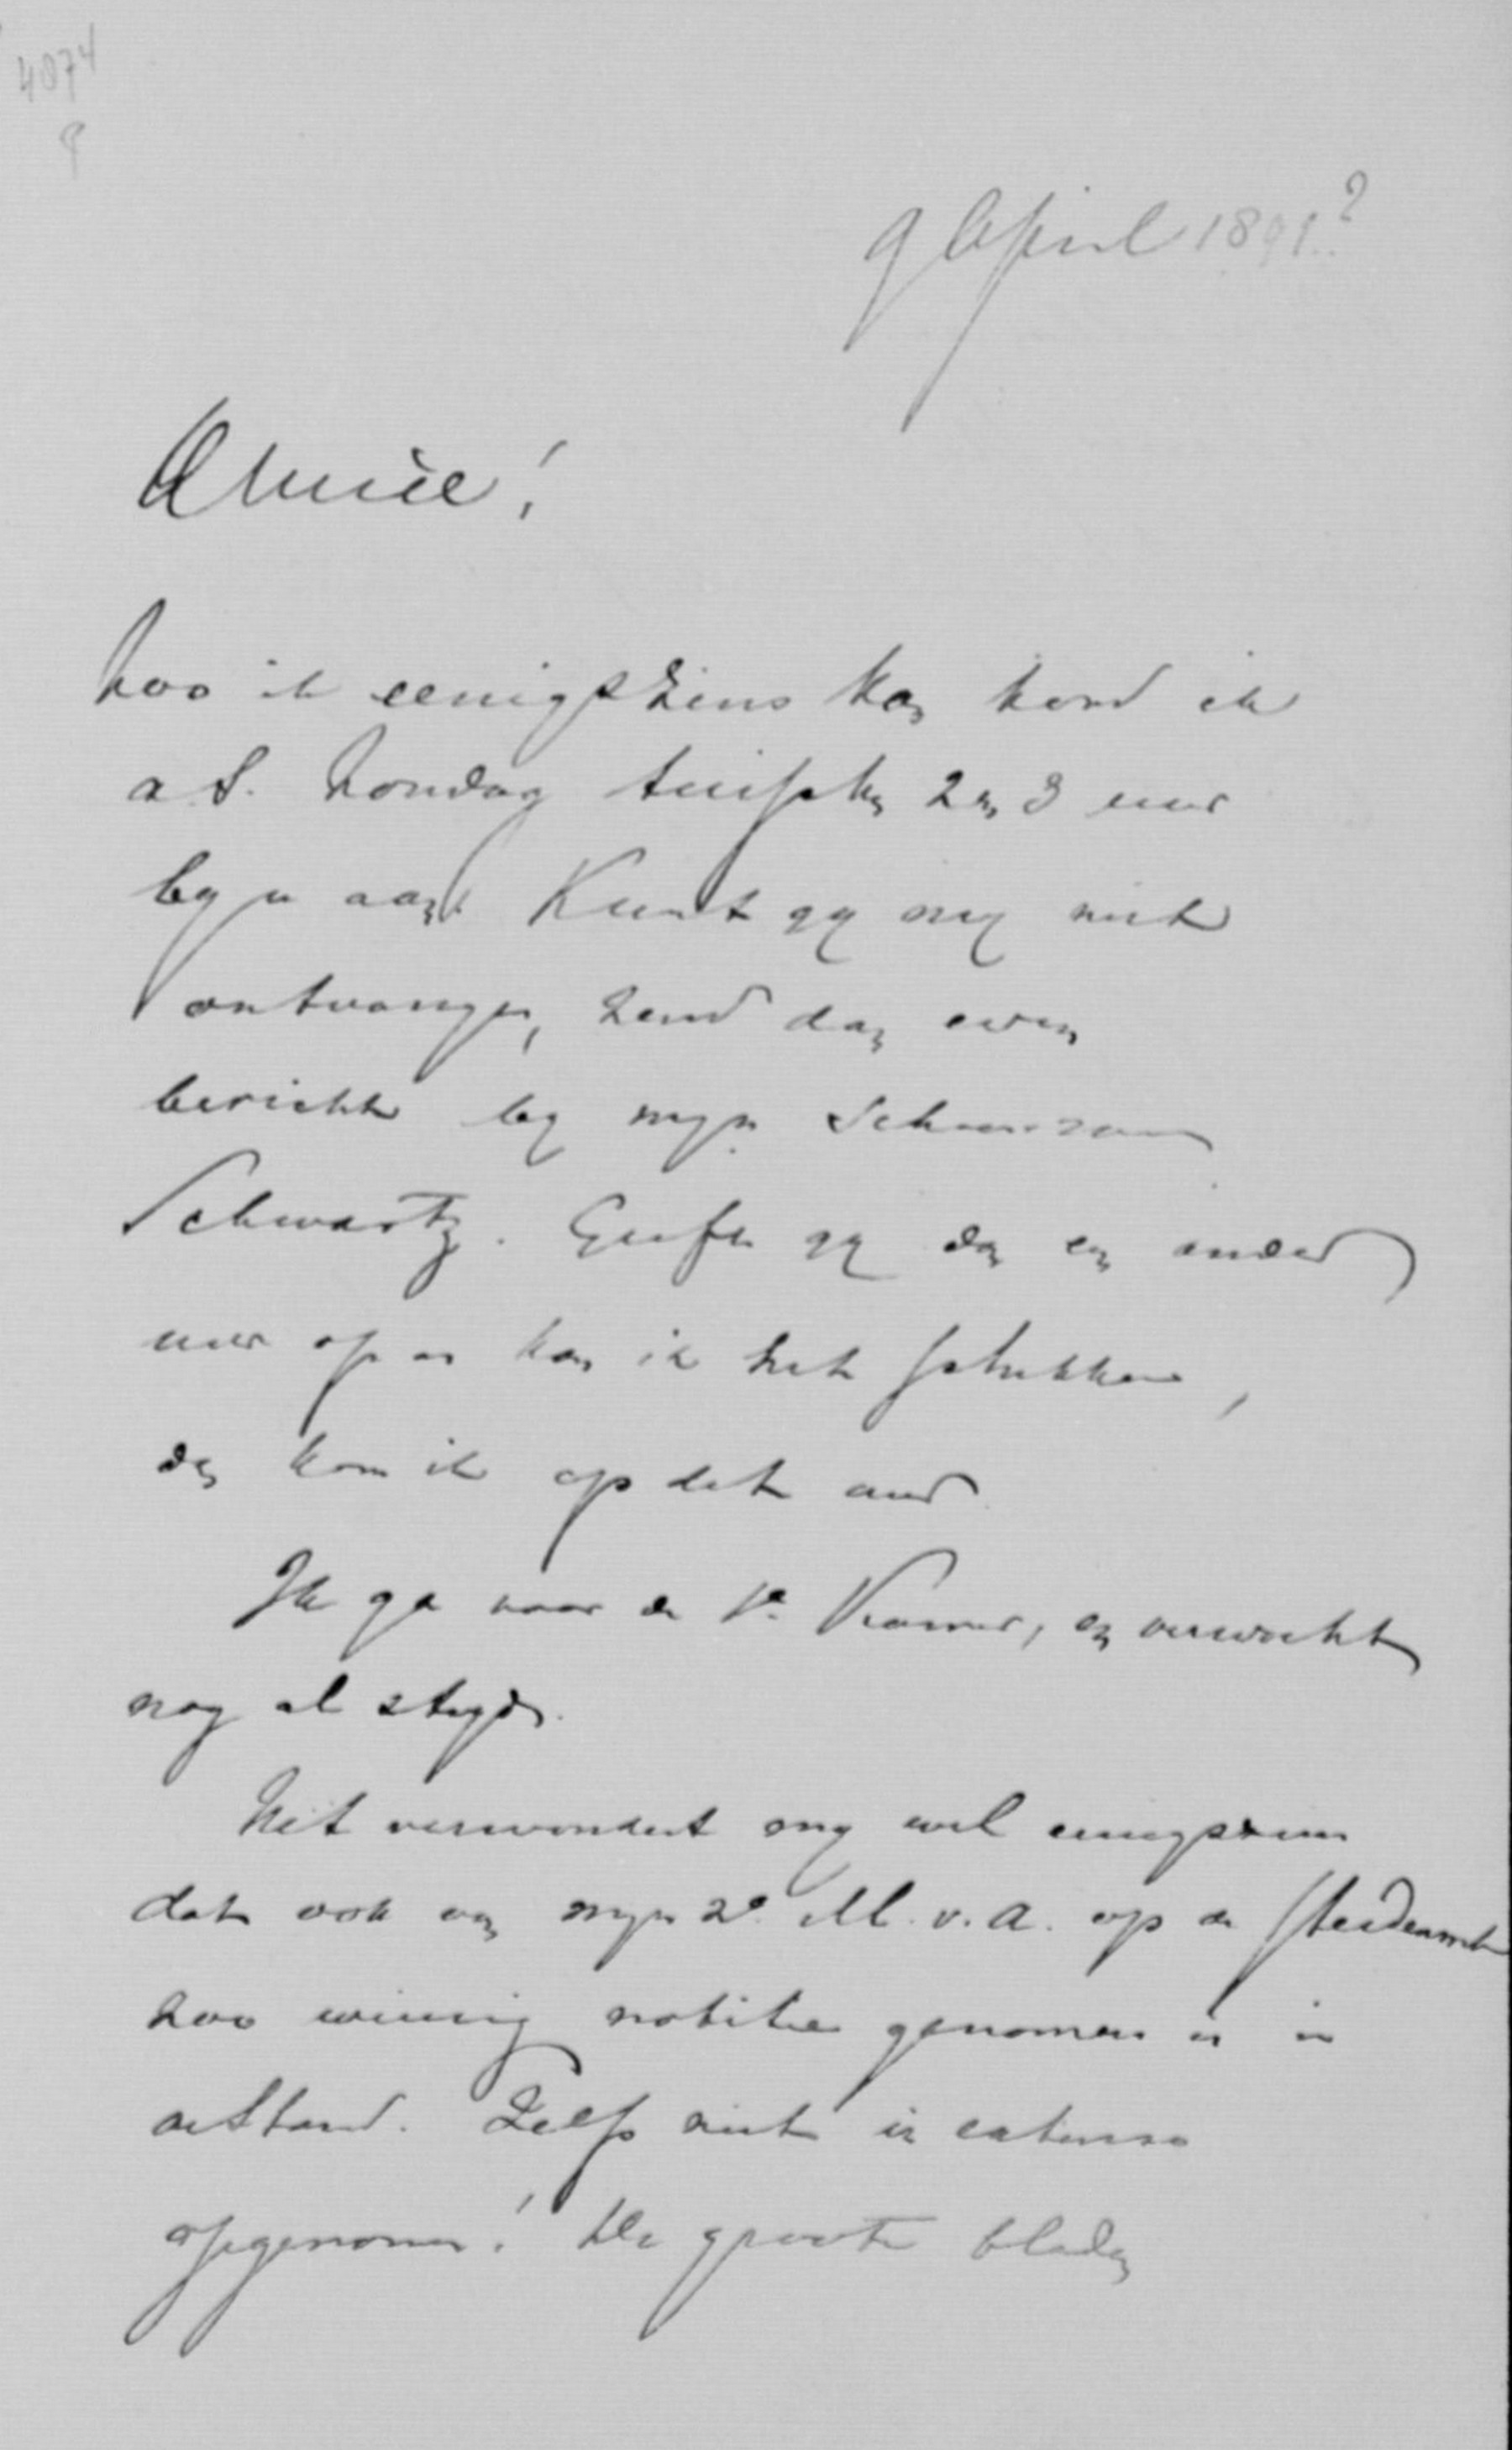 4074
9 April 1891?
Amice!
Zoo ik eenigszins kan kom ik
a.S. Zondag tusschen 2 en 3 uur
by u aan. Kunt gy my niet
ontvangen, zend dan even
bericht by myn Schoonzoon
Schwartz. Geeft gy dan een ander
uur op en kan ik het schikken,
dan kom ik op dat uur
Ik ga naar de 1e Kamer, en verwacht
nog al stryd.
Het verwondert my wel eenigszins
dat ook van myn 2e M.v.A. op de
zoo weinig notitie genomen is in
ar Stand. Zelfs niet in extenso
opgenomen! De groote bladen